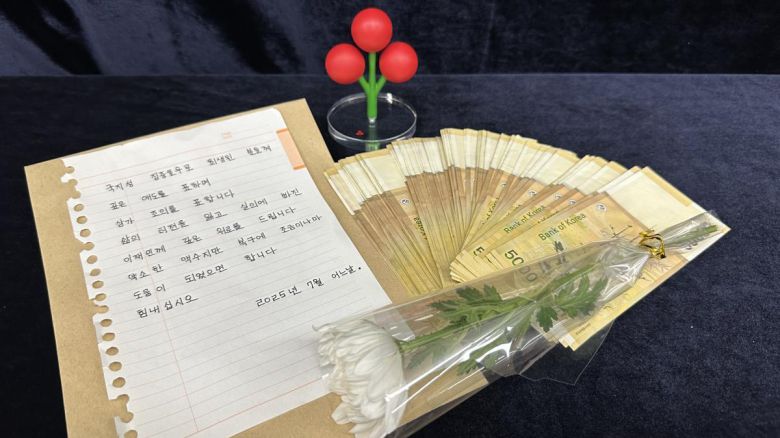 국지성 집중호우로 희생된 분들께
깊은 애도를 표하며
삼가 조의를 표합니다
삶의 터전을 잃고 실의에 빠진
이재민께 깊은 위로를 드립니다
약소 한 액수지만 복구에 조금이나마
도움이 되었으면 합니다
힘내십시오
2025년 7월 어느날.
Bank of Korea
Bank of Korea
Bank of Korea